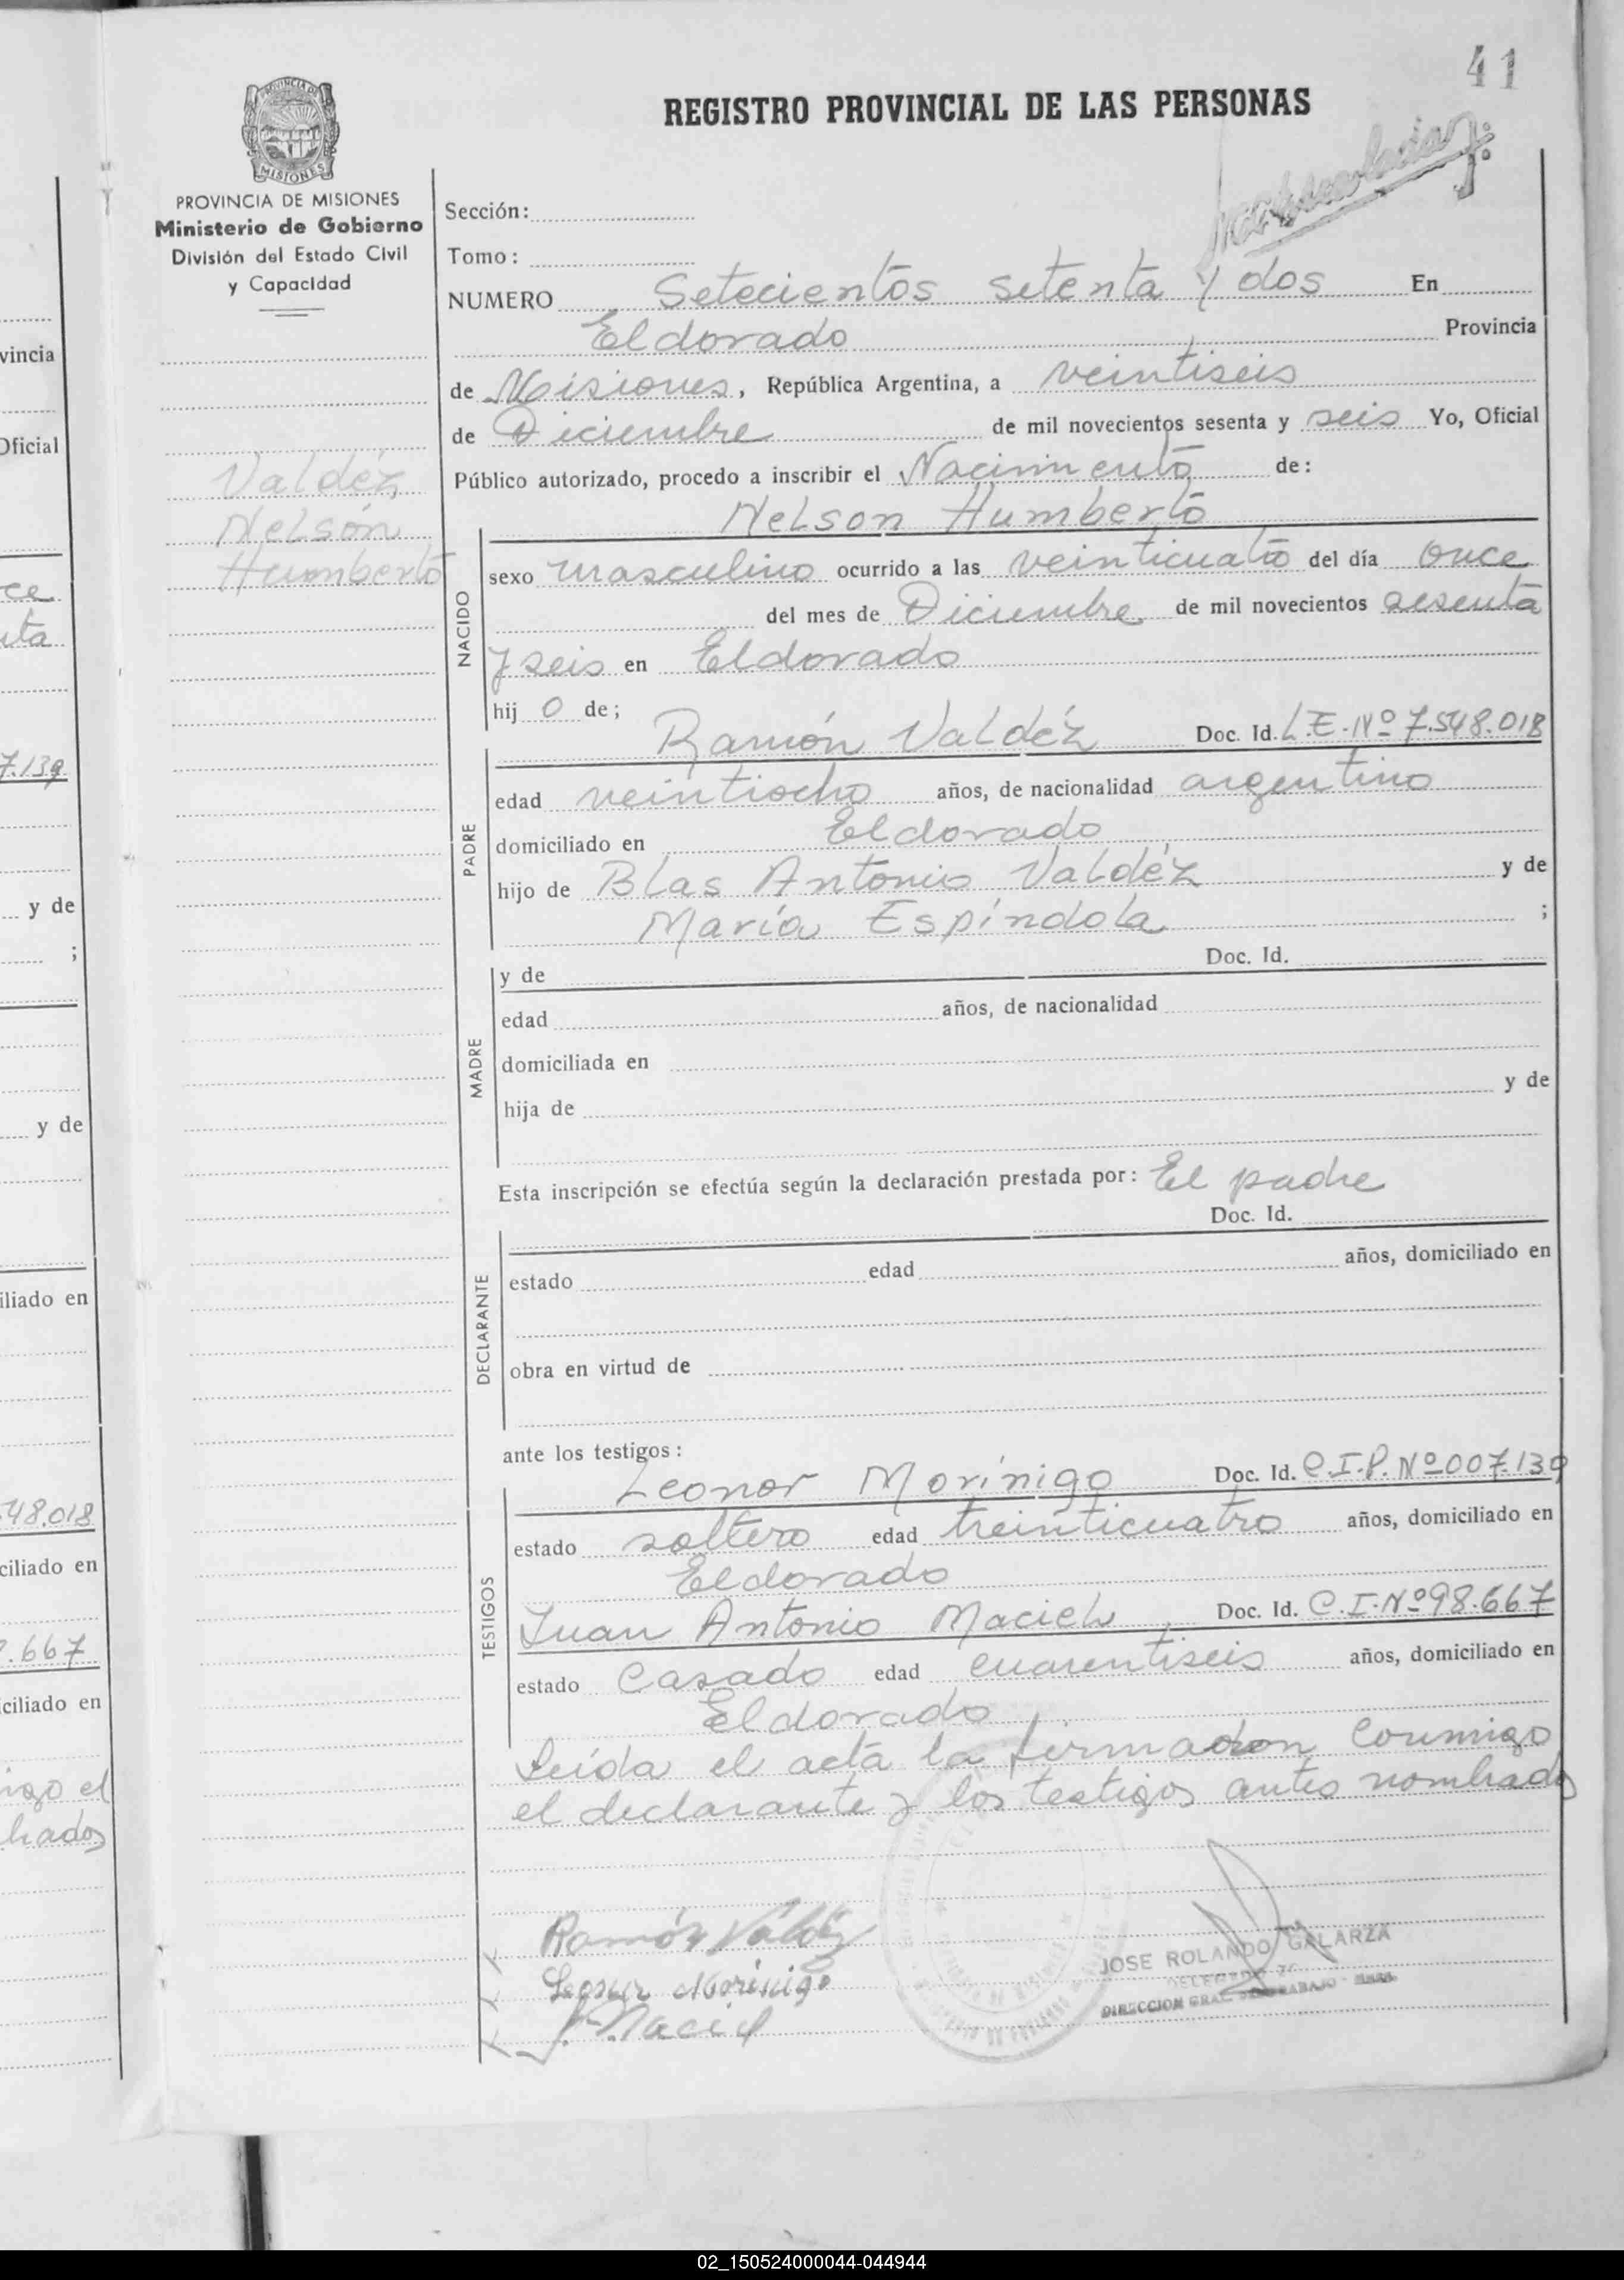 41
REGISTRO PROVINCIAL DE LAS PERSONAS
PROVINCIA DE MISIONES
Ministerio de Gobierno
División del Estado Civil
y Capacidad
Valdéz
Nelsón
Humberto
Sección:
Tomo:
NUMERO Setecientos setenta y dos En
Eldorado Provincia
de Misiones, República Argentina, a veintiseis
de Diciembre de mil novecientos sesenta y seis Yo, Oficial
Público autorizado, procedo a inscribir el Nacimiento de:
Nelson Humberto
NACIDO
sexo masculino ocurrido a las veinticuatro del día once
del mes de Diciembre de mil novecientos sesenta
y seis en Eldorado
hij o de;
Ramón Valdéz Doc. Id. L.E.Nº 7.548.018
PADRE
edad veintiocho años, de nacionalidad argentino
domiciliado en Eldorado
hijo de Blas Antonio Valdéz y de
María Espíndola ;
MADRE
y de Doc. Id.
edad años, de nacionalidad
domiciliada en
hija de y de
Esta inscripción se efectúa según la declaración prestada por: El padre
Doc. Id.
DECLARANTE
estado edad años, domiciliado en
obra en virtud de
ante los testigos:
Leonor Morínigo Doc. Id. C.I.P. Nº 007.139
TESTIGOS
estado soltero edad treinticuatro años, domiciliado en
Eldorado
Juan Antonio Maciel Doc. Id. C.I.Nº 98.667
estado Casado edad cuarentiseis años, domiciliado en
Eldorado
Leída el acta la firmaron conmigo
el declarante y los testigos antes nombrados
Ramón Valdéz
Leonor Morinigo
J. Maciel
JOSE ROLANDO GALARZA
DIRECCION GRAL. DE TRABAJO
vincia
Oficial
ce
nta
7.139
y de
;
y de
iliado en
48.018
ciliado en
.667
ciliado en
migo el
brados
02_150524000044-044944